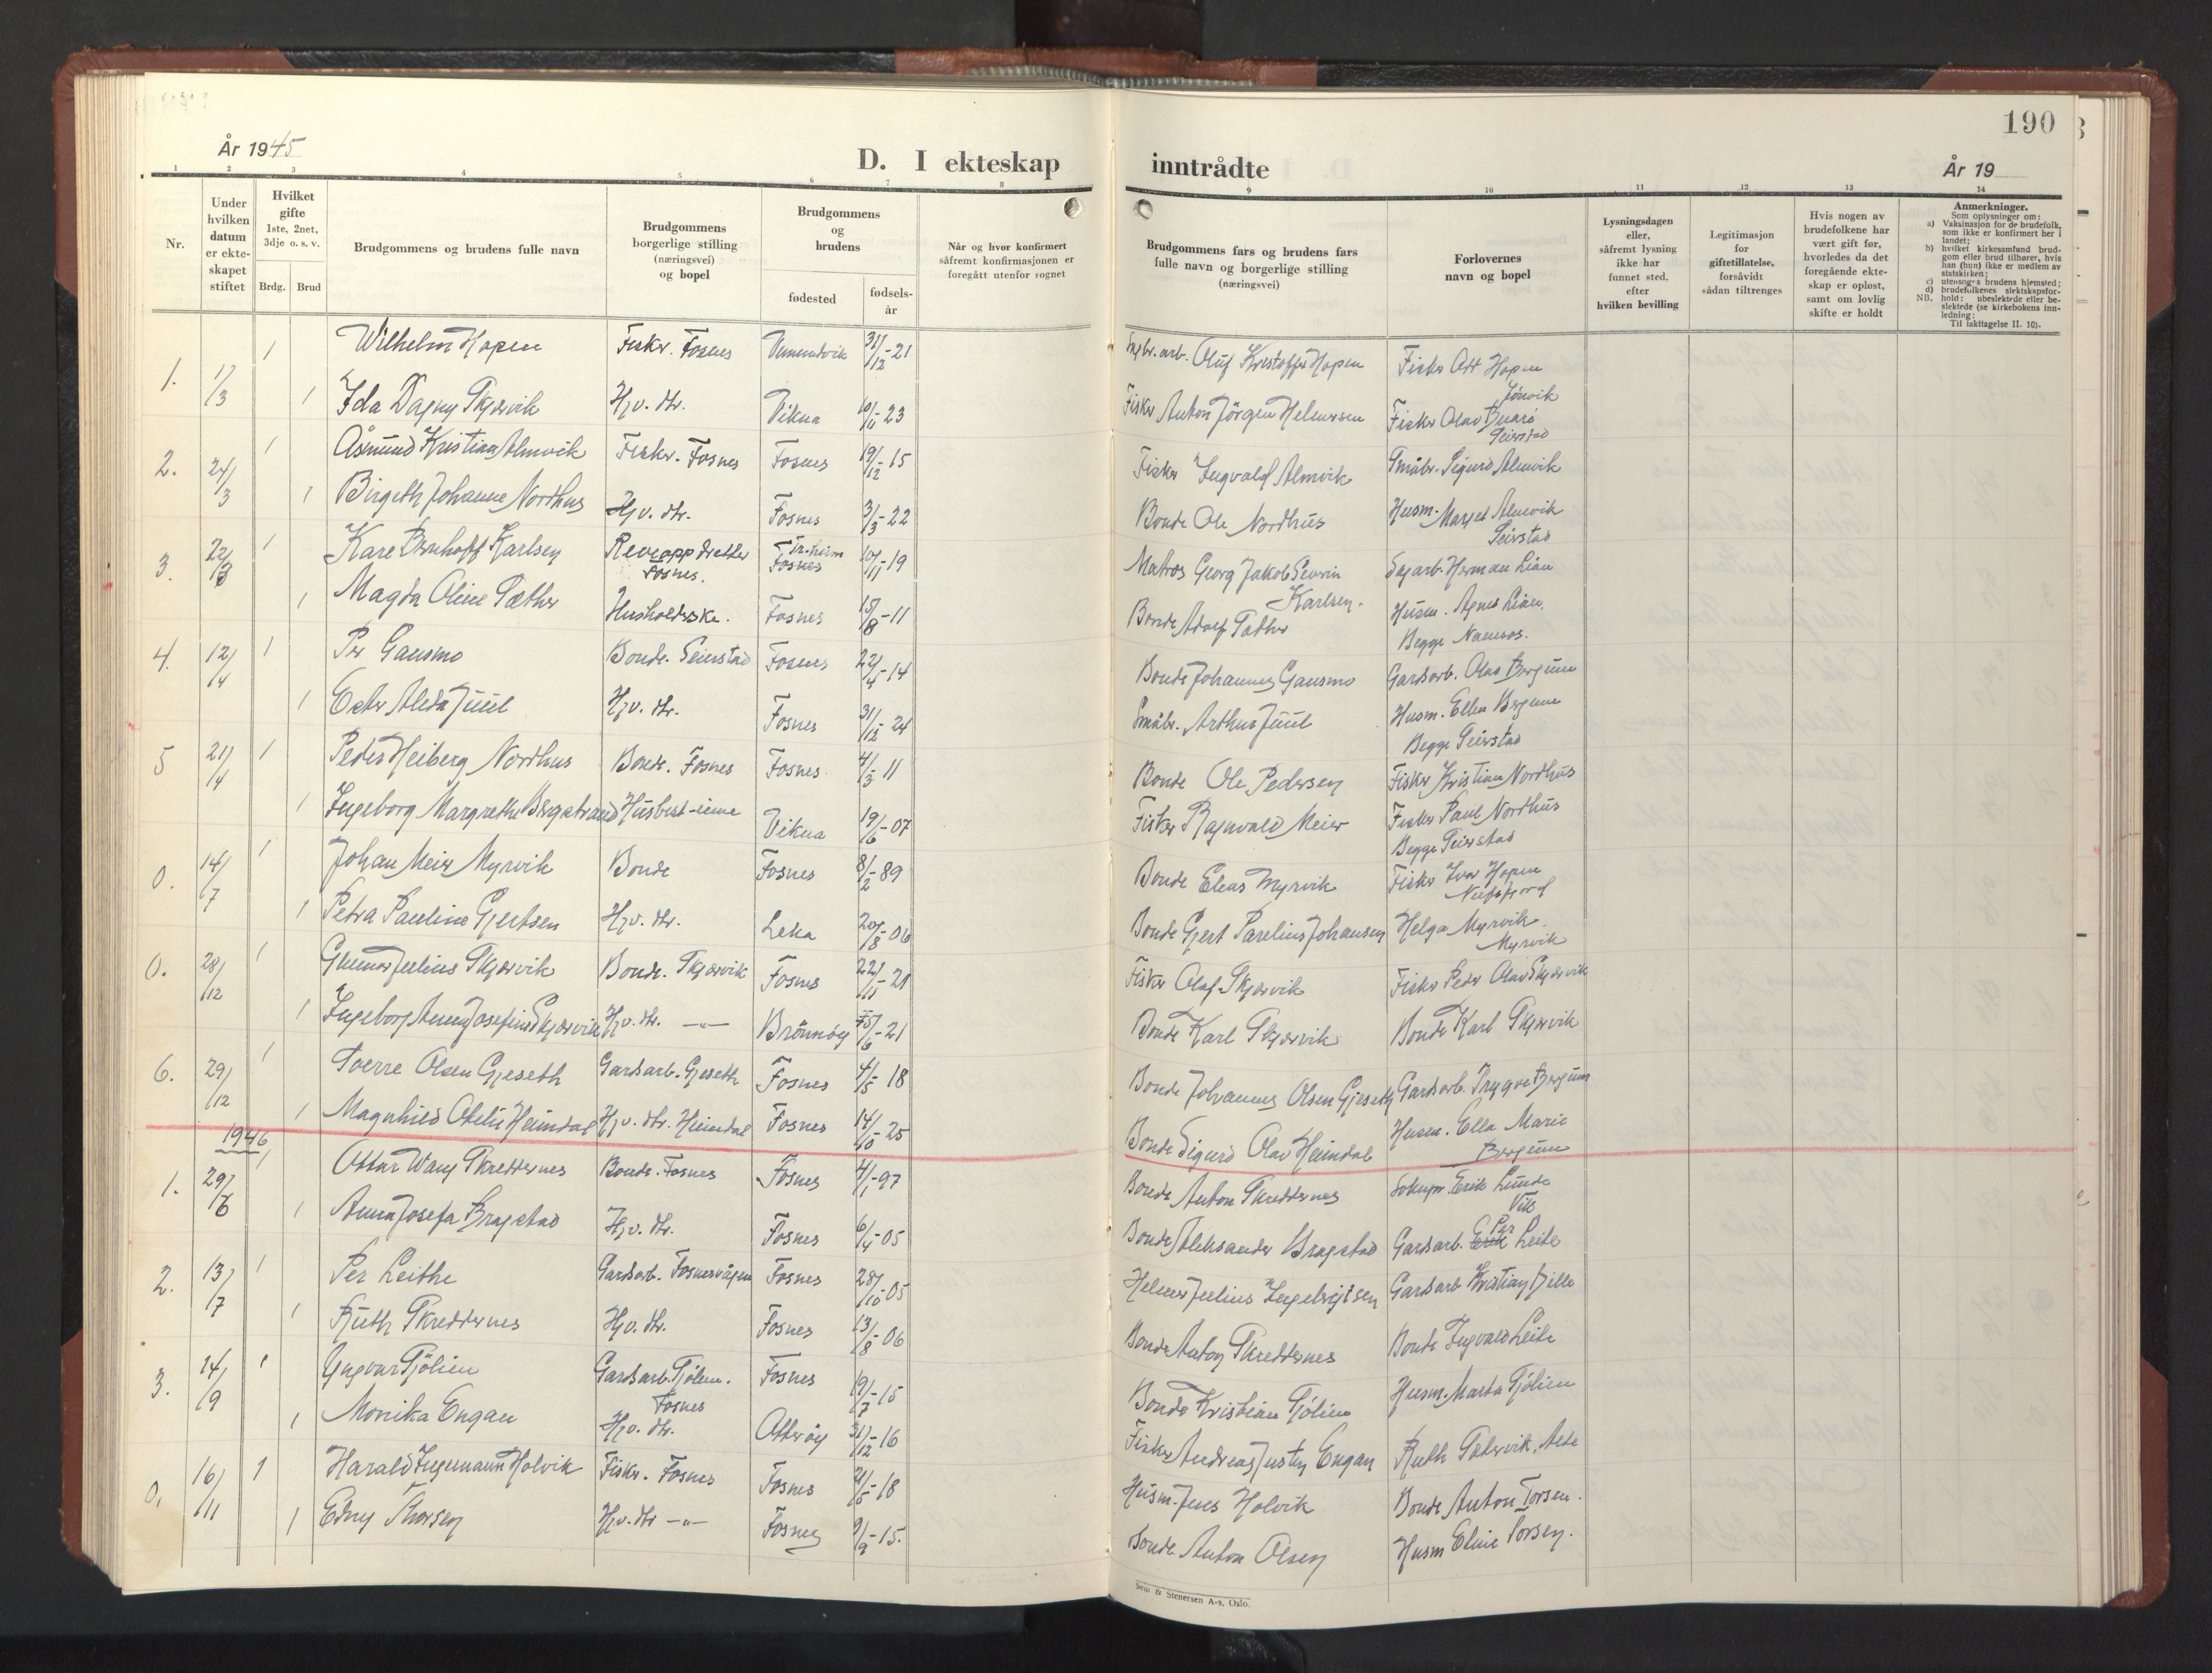 190
År 1945
D. I ekteskap
inntrådte
År 19
1 2 3 4 5 6 7 8
9 10 11 12 13 14
Nr.
Under hvilken datum er ekte-skapet stiftet
Hvilket gifte 1ste, 2net, 3dje o. s. v.
Brdg. Brud
Brudgommens og brudens fulle navn
Brudgommens borgerlige stilling (næringsvei) og bopel
Brudgommens og brudens
fødested
fødsels-år
Når og hvor konfirmert såfremt konfirmasjonen er foregått utenfor sognet
Brudgommens fars og brudens fars fulle navn og borgerlige stilling (næringsvei)
Forlovernes navn og bopel
Lysningsdagen eller, såfremt lysning ikke har funnet sted, efter hvilken bevilling
Legitimasjon for giftetillatelse, forsåvidt sådan tiltrenges
Hvis nogen av brudefolkene har vært gift før, hvorledes da det foregående ekte-skap er opløst, samt om lovlig skifte er holdt
Anmerkninger.
Som oplysninger om:
a) Vaksinasjon for de brudefolk, som ikke er konfirmert her i landet;
b) hvilket kirkesamfund brud-gom eller brud tilhører, hvis han (hun) ikke er medlem av statskirken;
c) utensogns brudens hjemsted;
d) brudefolkenes slektskapsfor-hold: ubeslektede eller be-slektede (se kirkebokens inn-ledning:
NB.
Til iakttagelse II. 10).
1. 1/3 1 Wilhelm Hopen Fisker. Fosnes Vemundvik 31/12-21 Oluf Kristoffer Hopen Fisker Ott Hopen
Jønvik
1 Ida Dagny Skjærvik Hjv. dtr. Vikna 10/11-23 Fisker Anton Jörgen Helmersen Fisker Olav Buarö
Seierstad
2. 24/3 1 Åsmund Kristian Almvik Fisker. Fosnes Fosnes 19/12-15 Fisker Ingvald Almvik Småbr. Sigurd Almvik
1 Birgeth Johanne Nordhus Hjv. dtr. Fosnes 3/3-22 Bonde Ole Nordhus Husm. Margit Almvik
Seierstad
3. 22/3 1 Kåre Bernhoff Karlsen Reveoppdretter Fosnes. Tr.heim Fosnes 10/11-19 Matros Georg Jakob Severin Karlsen. Sagarb. Herman Lian
1 Magda Oline Sæther Husholderske. Fosnes 15/8-11 Bonde Adolf Sæther Husm. Agnes Lian.
Begge Namsos.
4. 12/4 1 Per Gansmo Bonde. Seierstad Fosnes 22/4-14 Bonde Johannes Gansmo Gardsarb. Olav Bergum
1 Ester Alida Juul Hjv. dtr. Fosnes 31/12-24 Småbr. Arthur Juul Husm. Ella Bergum
Begge Seierstad
5 21/4 1 Peder Heiberg Nordhus Bonde. Fosnes Fosnes. 4/3-11 Bonde Ole Pedersen Fisker Kristian Nordhus
1 Ingeborg Margrethe Bergstrand Husbest-inne Vikna 19/6-07 Fisker Ragnvald Meier Fisker Paul Nordhus
Begge Seierstad
0. 14/7 1 Johan Meier Myrvik Bonde Fosnes 8/2-89 Bonde Elias Myrvik Fisker Ivar Hopen
1 Petra Pauline Gjertsen Hjv. dtr. Leka 20/8-06 Bonde Gjert Parelius Johansen Helga Myrvik.
Myrvik
0. 28/12 1 Gunnar Julius Skjærvik Bonde. Skjærvik Fosnes 22/11-21 Fisker Olaf Skjærvik Fisker Peder Olav Skjærvik
1 Ingeborg Anna Josefine Skjærvik Hjv. dtr. -"- Brönnöy 15/6-21 Bonde Karl Skjærvik Bonde Karl Skjærvik
6. 29/12 1 Toerre Olsen Gjeseth Gardsarb. Gjeseth Fosnes 4/5-18 Bonde Johannes Olsen Gjeseth Gardsarb. Trygve Bergum
1 Magnhild Otelie Heimdal Hjv. dtr. Heimdal Fosnes 14/10-25 Bonde Sigurd Olav Heimdal Husm. Ella Marie
Bergum
1946
1. 29/6 1 Ottar Wang Skreddernes Bonde. Fosnes Fosnes 4/1-97 Bonde Anton Skreddernes Soknpr. Erik Lunde
Vik
1 Anna Josefa Bragstad Hjv. dtr. Fosnes 6/4-05 Bonde Aleksander Bragstad Gardsarb. Erik Per Leite
2. 13/7 1 Per Leithe Gardsarb. Fosnesvågen Fosnes 28/10-05 Helmer Julius Ingebrigtsen Gardsarb Kristian Gille
1 Ruth Skreddernes Hjv. dtr. Fosnes 13/8-06 Bonde Anton Skreddernes Bonde Ingvald Leite
3. 14/9 1 Yngvar Tjölien Gardsarb. Tjölien. Fosnes Fosnes 19/7-15 Bonde Kristian Tjölien Husm. Marta Tjölien
1 Monika Engan Hjv. dtr. Otteröy 31/12-16 Fisker Andreas Justin Engan Ruth Sætervik,
0. 16/11 1 Harald Ingemann Holvik Fisker. Fosnes Fosnes 21/5-18 Husm. Jens Holvik Bonde Anton Torsen.
1 Edny Thorsen Hjv. dtr -"- Fosnes 9/9-15. Bonde Anton Olsen Husm Eline Torsen.
Sem & Stenersen A-s, Oslo.